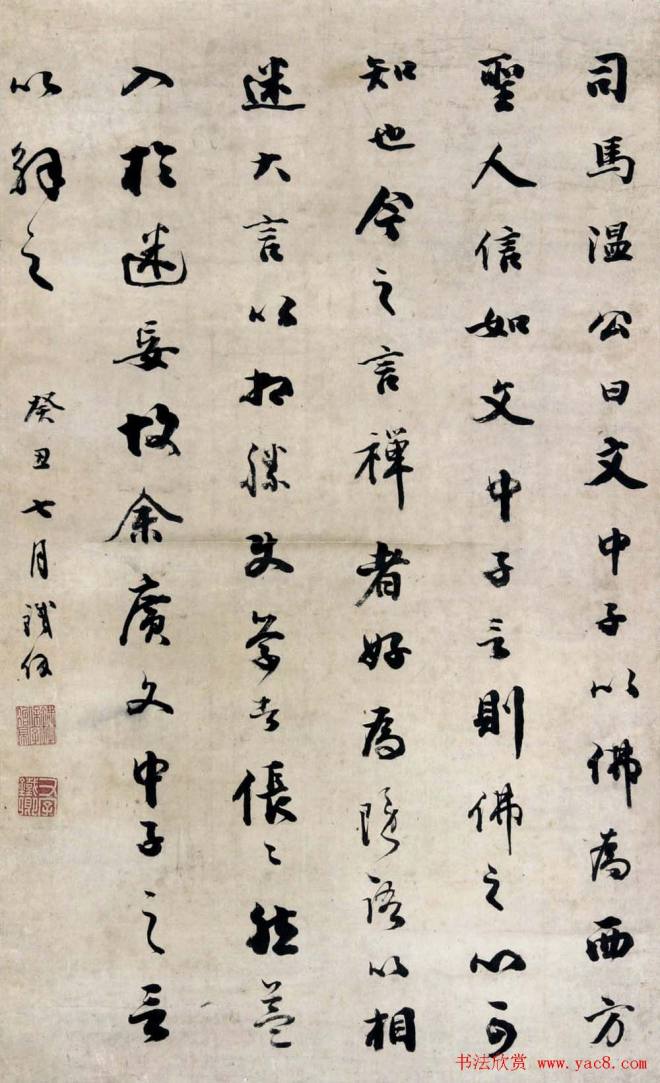 司馬溫公曰文中子以佛為西方
聖人信如文中子言則佛之心可
知也今之言禪者好為隱語以相
迷大言以相勝使學者倀〻然益
入於迷妄故余廣文中子之言
以解之
癸丑七月鐵保
书法欣赏 www.yac8.com